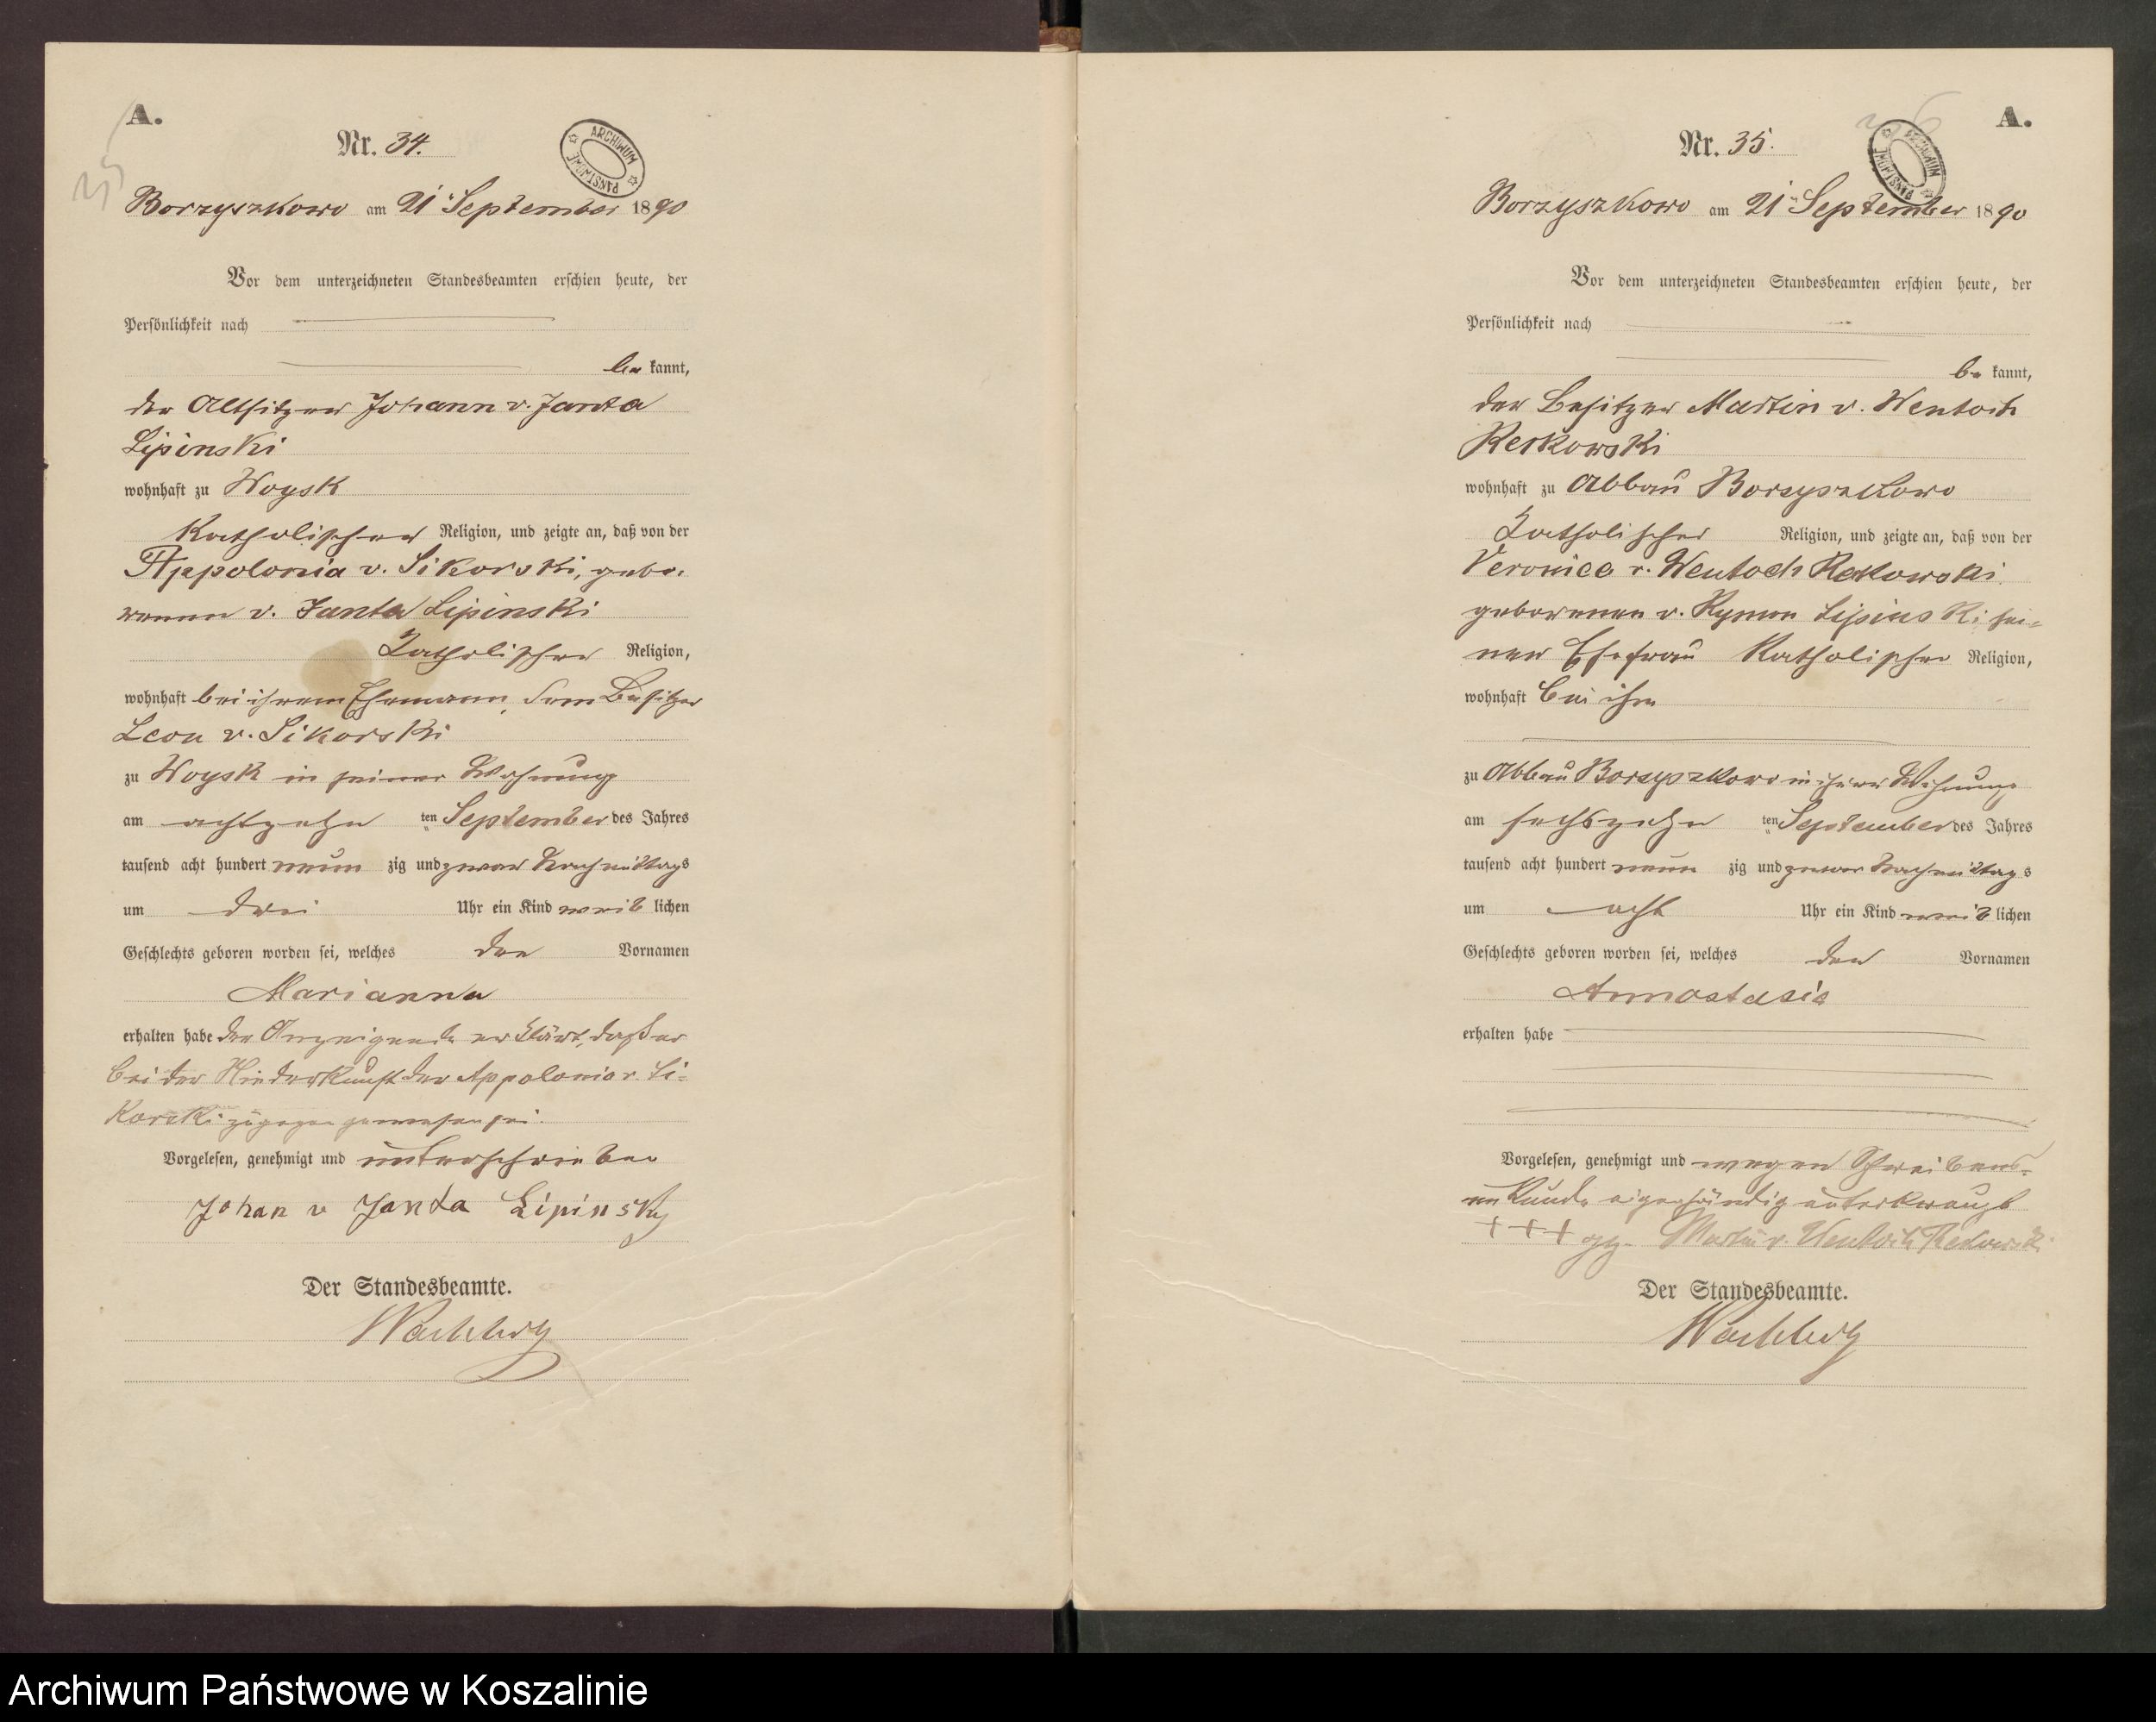 A.
Nr. 34.
ARCHIWUM PAŃSTWOWE
Borzyszkowo am 21 ten September 1890
Vor dem unterzeichneten Standesbeamten erschien heute, der
Persönlichkeit nach
be kannt,
der Altsitzer Johann v. Janta
Lipinski
wohnhaft zu Woysk
Katholischer Religion, und zeigte an, daß von der
Appolonia v. Sikorski, gebo-
renen v. Janta Lipinski
Katholischer Religion,
wohnhaft bei ihrem Ehemann, dem Besitzer
Leon v. Sikorski
zu Woysk in seiner Wohnung
am achtzehn ten September des Jahres
tausend acht hundert neun zig und zwar Nachmittags
um drei Uhr ein Kind weib lichen
Geschlechts geboren worden sei, welches den Vornamen
Marianna
erhalten habe der Anzeigende erklärt, daß er
bei der Niederkunft der Appolonia v. Si-
korski zugegen gewesen sei.
Vorgelesen, genehmigt und unterschrieben
Johan v Janta Lipinsky
Der Standesbeamte.
A.
Nr. 35.
ARCHIWUM PAŃSTWOWE
Borzyszkowo am 21 ten September 1890
Vor dem unterzeichneten Standesbeamten erschien heute, der
Persönlichkeit nach
be kannt,
der Besitzer Martin v. Wentoch
Rekowski
wohnhaft zu Abbau Borzyszkowo
Katholischer Religion, und zeigte an, daß von der
Veronica v. Wentoch Rekowski
geborenen v. Rymon Lipinski sei-
ner Ehefrau Katholischer Religion,
wohnhaft bei ihm
zu Abbau Borzyszkowo in ihrer Wohnung
am sechszehn ten September des Jahres
tausend acht hundert neun zig und zwar Nachmittags
um acht Uhr ein Kind weib lichen
Geschlechts geboren worden sei, welches den Vornamen
Annastasia
erhalten habe
Vorgelesen, genehmigt und wegen Schreibens-
unkunde eigenhändig unterkreuzt
+++ gez. Martin v. Wentoch Rekowski
Der Standesbeamte.
Archiwum Państwowe w Koszalinie